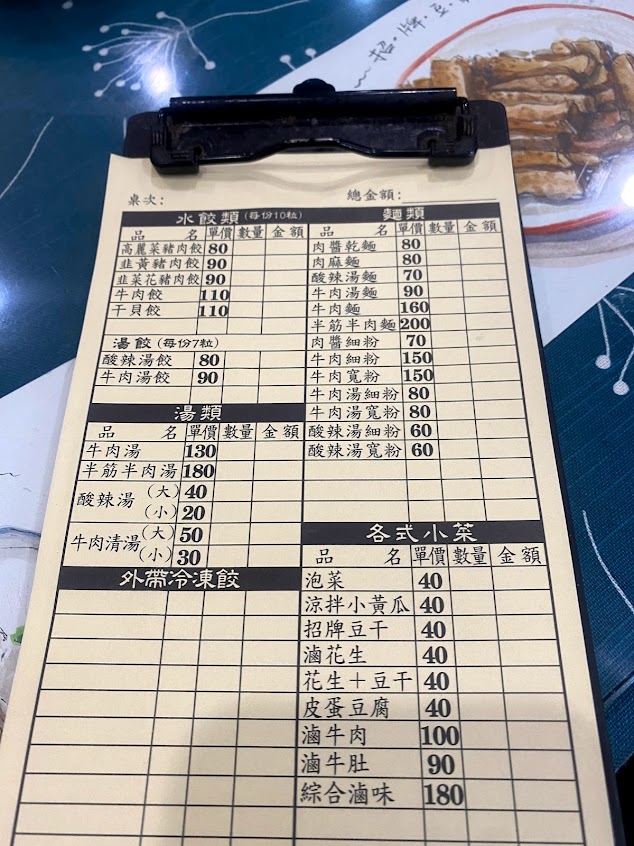 招·牌·豆
桌次:
總金額:
水餃類(每份10粒)
品名 單價 數量 金額
高麗菜豬肉餃 80
韭黃豬肉餃 90
韭菜花豬肉餃 90
牛肉餃 110
干貝餃 110
湯餃(每份7粒)
酸辣湯餃 80
牛肉湯餃 90
湯類
品名 單價 數量 金額
牛肉湯 130
半筋半肉湯 180
酸辣湯 (大) 40
(小) 20
牛肉清湯 (大) 50
(小) 30
外帶冷凍餃
麵類
品名 單價 數量 金額
肉醬乾麵 80
肉麻麵 80
酸辣湯麵 70
牛肉湯麵 90
牛肉麵 160
半筋半肉麵 200
肉醬細粉 70
牛肉細粉 150
牛肉寬粉 150
牛肉湯細粉 80
牛肉湯寬粉 80
酸辣湯細粉 60
酸辣湯寬粉 60
各式小菜
品名 單價 數量 金額
泡菜 40
涼拌小黃瓜 40
招牌豆干 40
滷花生 40
花生+豆干 40
皮蛋豆腐 40
滷牛肉 100
滷牛肚 90
綜合滷味 180